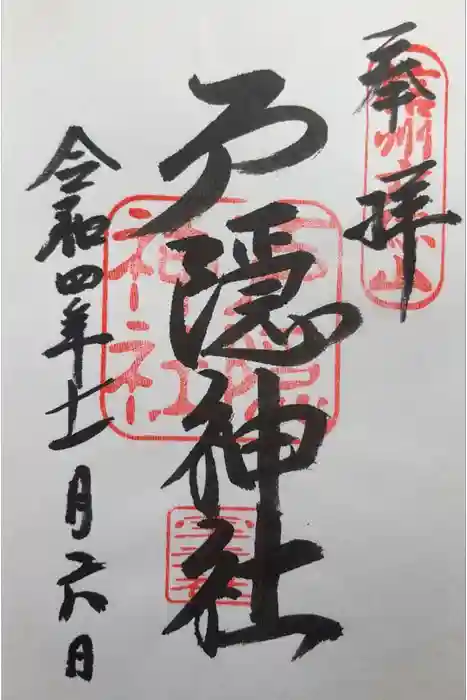 奉拝
信州
山
戸隠神社
戸隠
神社
令和四年十一月六日